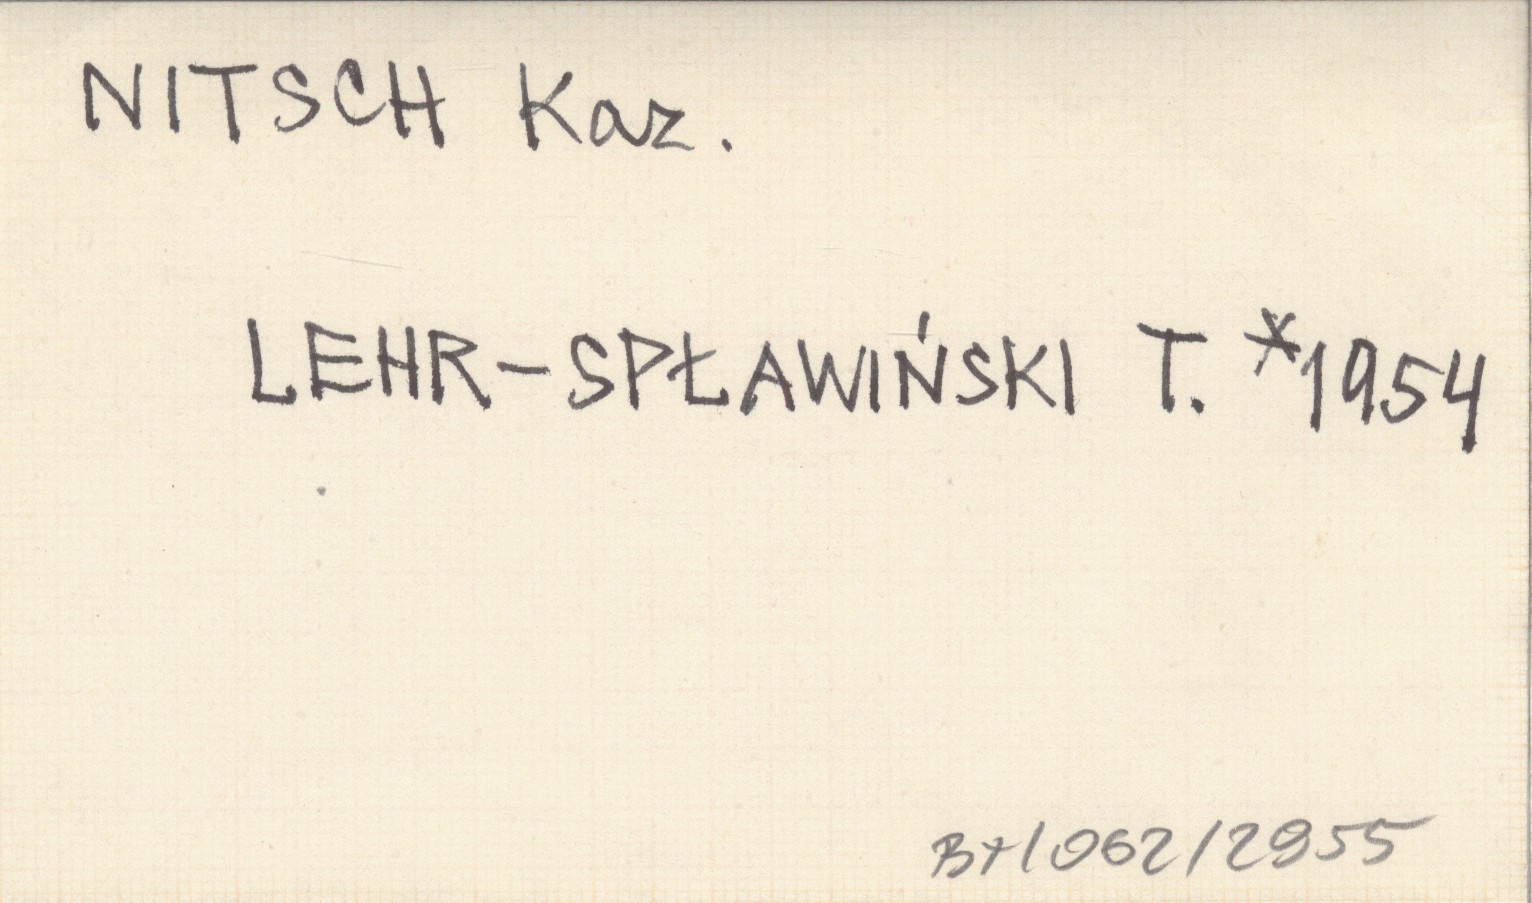 NITSCH Kaz.
LEHR-SPŁAWIŃSKI T. *1954
Bt/062/2955